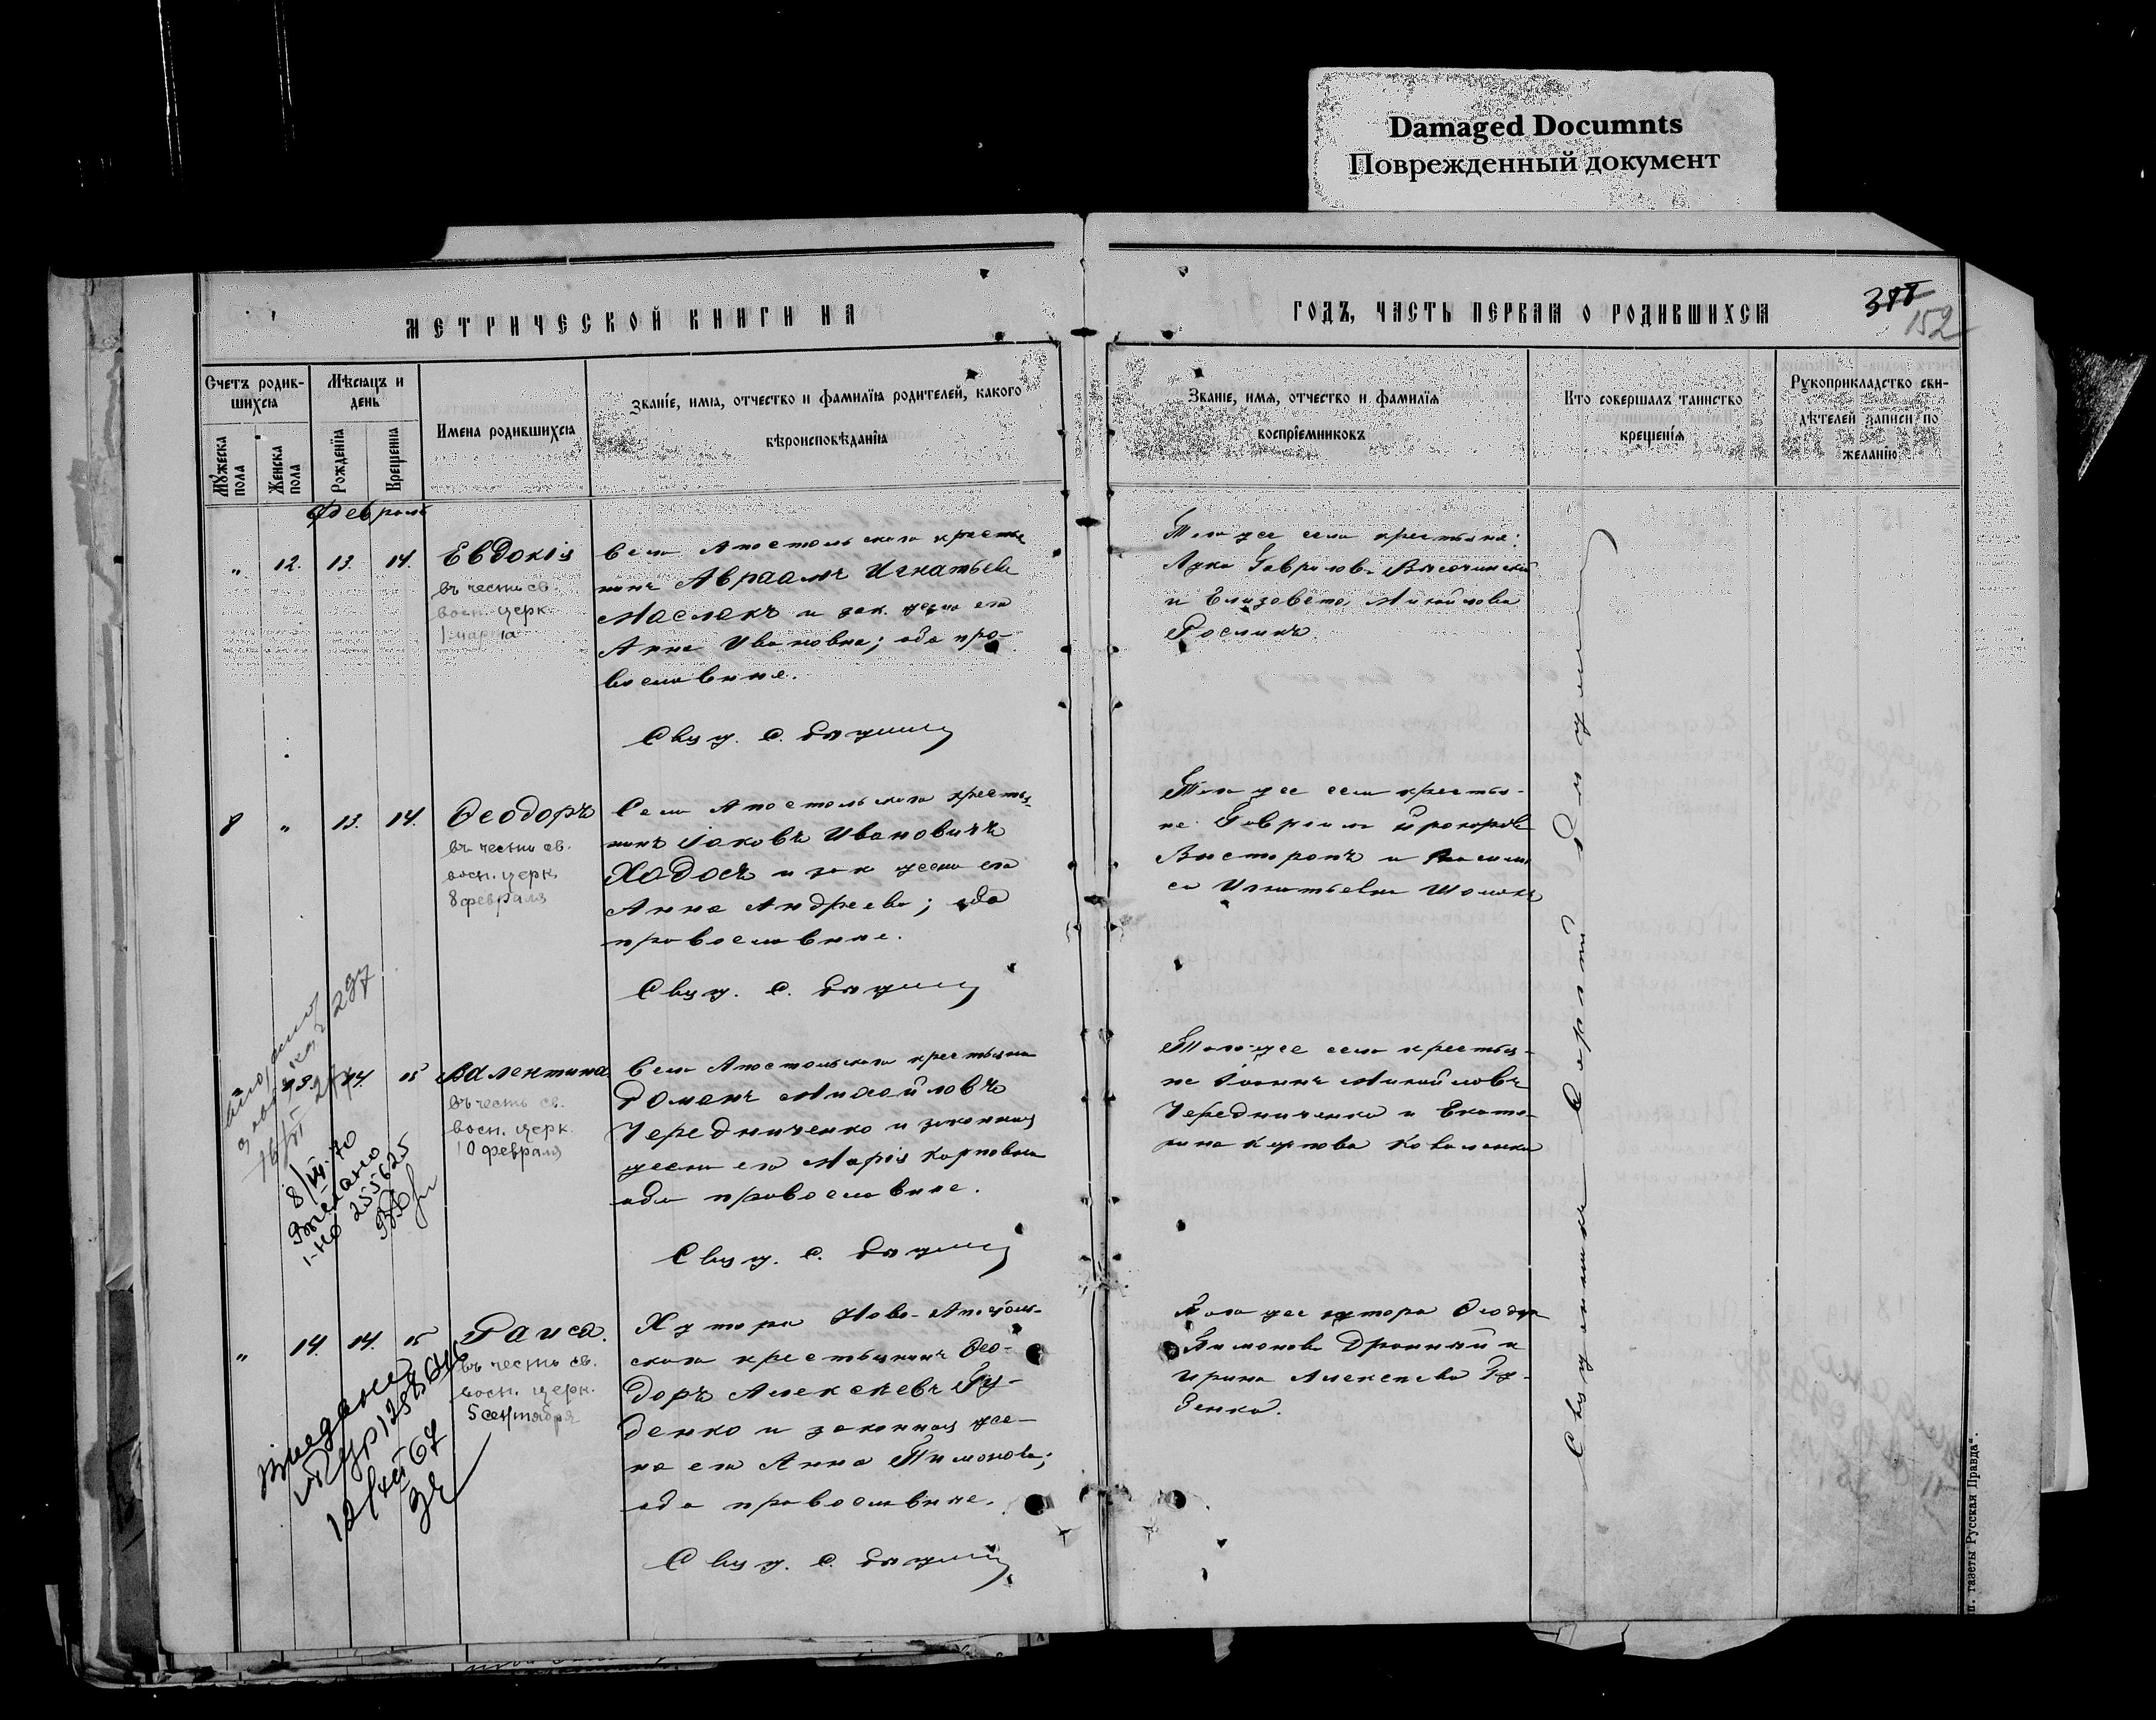 Damaged Documnts
Поврежденный документ
МЕТРИЧЕСКОЙ КНИГИ НА
ГОДЪ, ЧАСТЬ ПЕРВАЯ О РОДИВШИХСЯ
152
Счетъ родив-
шихся
Мужеска пола
Женска пола
Мѣсяцъ и
день
Рожденія
Крещенія
Имена родившихся
Званіе, имя, отчество и фамилія родителей, какого
вѣроисповѣданія
Званіе, имя, отчество и фамилія
воспріемниковъ
Кто совершалъ таинство
крещенія
Рукоприкладство сви-
дѣтелей записи по
желанію
Февраль
" 12. 13. 14. Евдокія
въ честь св.
восп. церк.
1 марта
Села Апостольскаго крестья
нинъ Авраамъ Игнатьев
Маслакъ и зак. жена его
Анна Ивановна; оба пра-
вославные.
Свящ. С.
Того же села крестьяне:
Лука Гаврилов
и Елизавета Михайлова
8 " 13. 14. Ѳеодоръ
въ честь св.
восп. церк.
8 февраля
Села Апостольскаго крестья-
нинъ Іаковъ Ивановичъ
Ходосъ и зак жена его
Анна Андреева; оба
православные.
Свящ. С.
Того же села крестья-
не Гавріилъ Прохоров
и Васили
са Игнатьевна
14. 15 Валентина
въ честь св.
восп. церк.
10 февраля
Села Апостольскаго крестьянин
Романъ Михайловъ
Чередниченко и законная
жена его Марія Карповна
оба православные.
Свящ. С.
Того-же села крестья-
не Іоаннъ Михайловъ
Чередниченко и Екате-
рина Карпова Коваленко
8/VII-70
255625
" 14. 14. 15 Раиса.
въ честь св.
восп. церк.
5 сентября
Хутора Ново-Апостоль-
скаго крестьянинъ Ѳео-
доръ Алексѣевъ Гу-
денко и законная же-
на его Анна Тимонова;
оба православные.
Свящ. С.
Того же хутора Ѳеодор
Тимонов и
Ирина Алексѣева Гу-
денко.
Выдано
67
Священникъ Сергій
п. газеты Русская Правда".